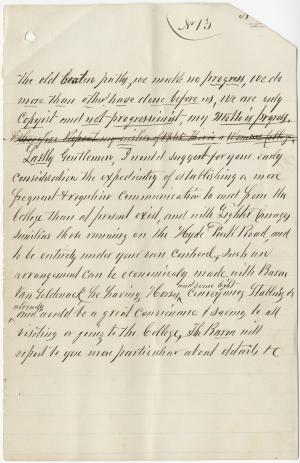 No 13
the old beaten path, we make no progress, we do
more than others have done before us, we are only
Copyist and not progressionist - my Motto is progress.
Lastly Gentlemen, I would suggest for your early
Consideration the expediency of establishing a more
frequent & regular Communication to and from the
College than at present exist, and with Light Carriages
similar those running on the Hyde Park Road, and
to be entirely under your own Controul, such an
arrangement can be economically made with Baron
Van Goldenack he having Horses and some light Conveyances Stabling &
already and would be a great Convenience & saving to all
visiting or going to the College, The Baron will
report to you more particular about details &c